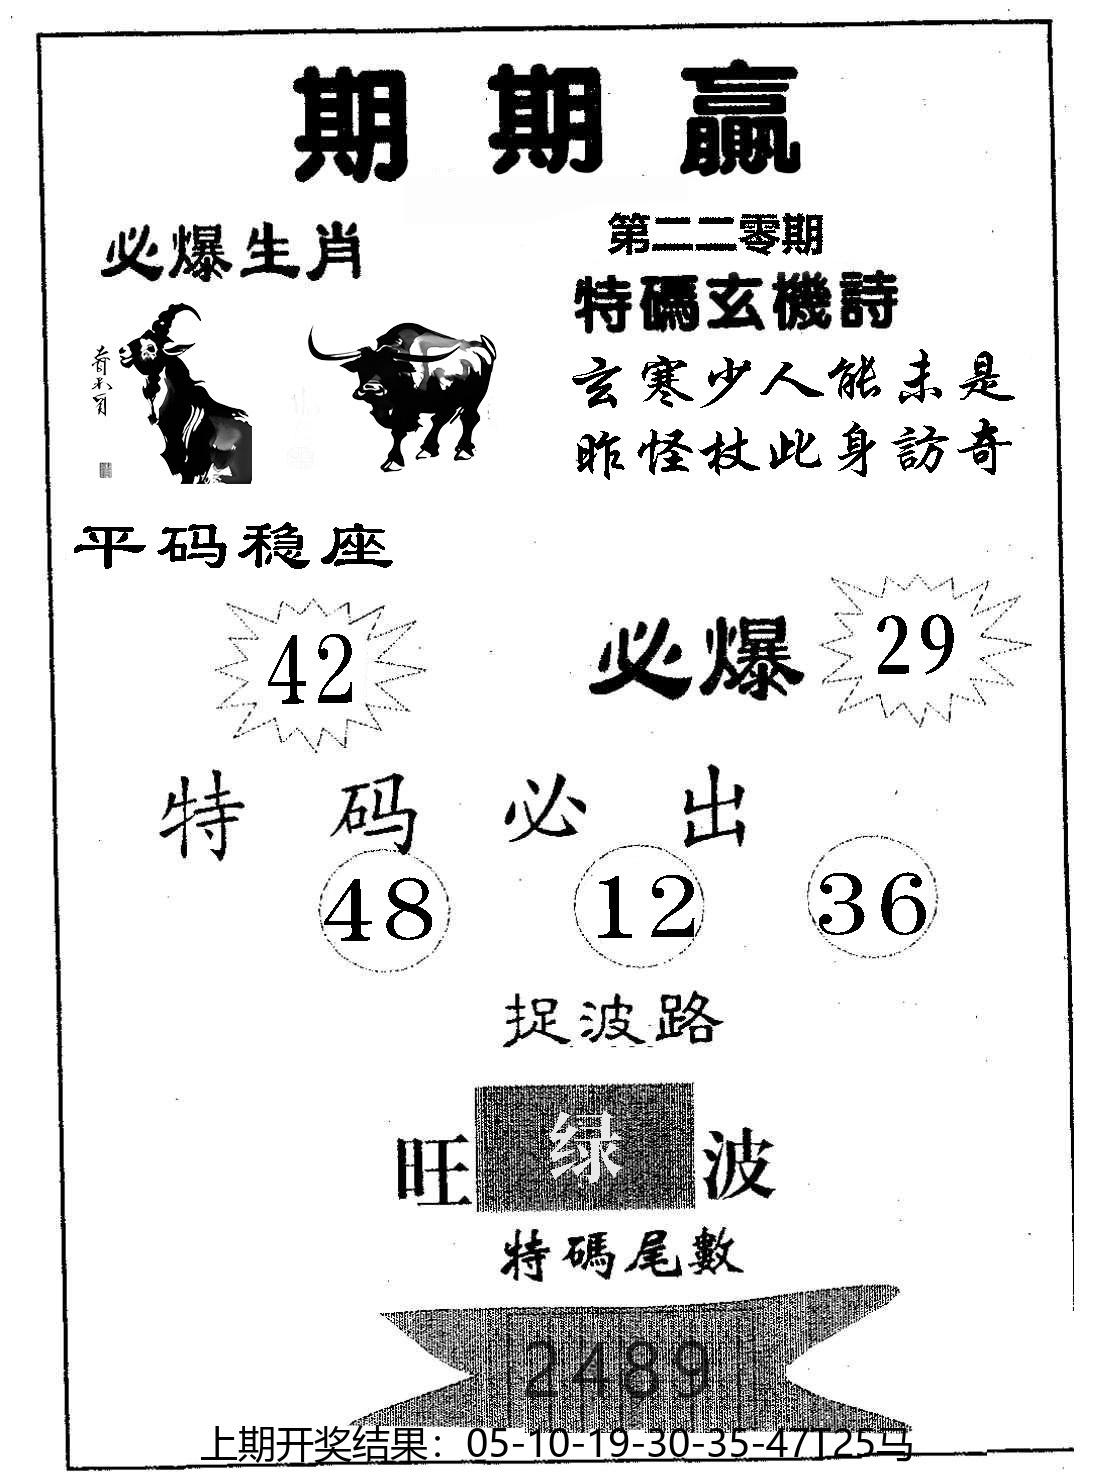 期期赢
必爆生肖
第二二零期
特碼玄機詩
玄寒少人能未是
昨怪杖此身訪奇
平码稳座
42
必爆
29
特码必出
48 12 36
捉波路
旺绿波
特碼尾數
2489
上期开奖结果：05-10-19-30-35-47T25马